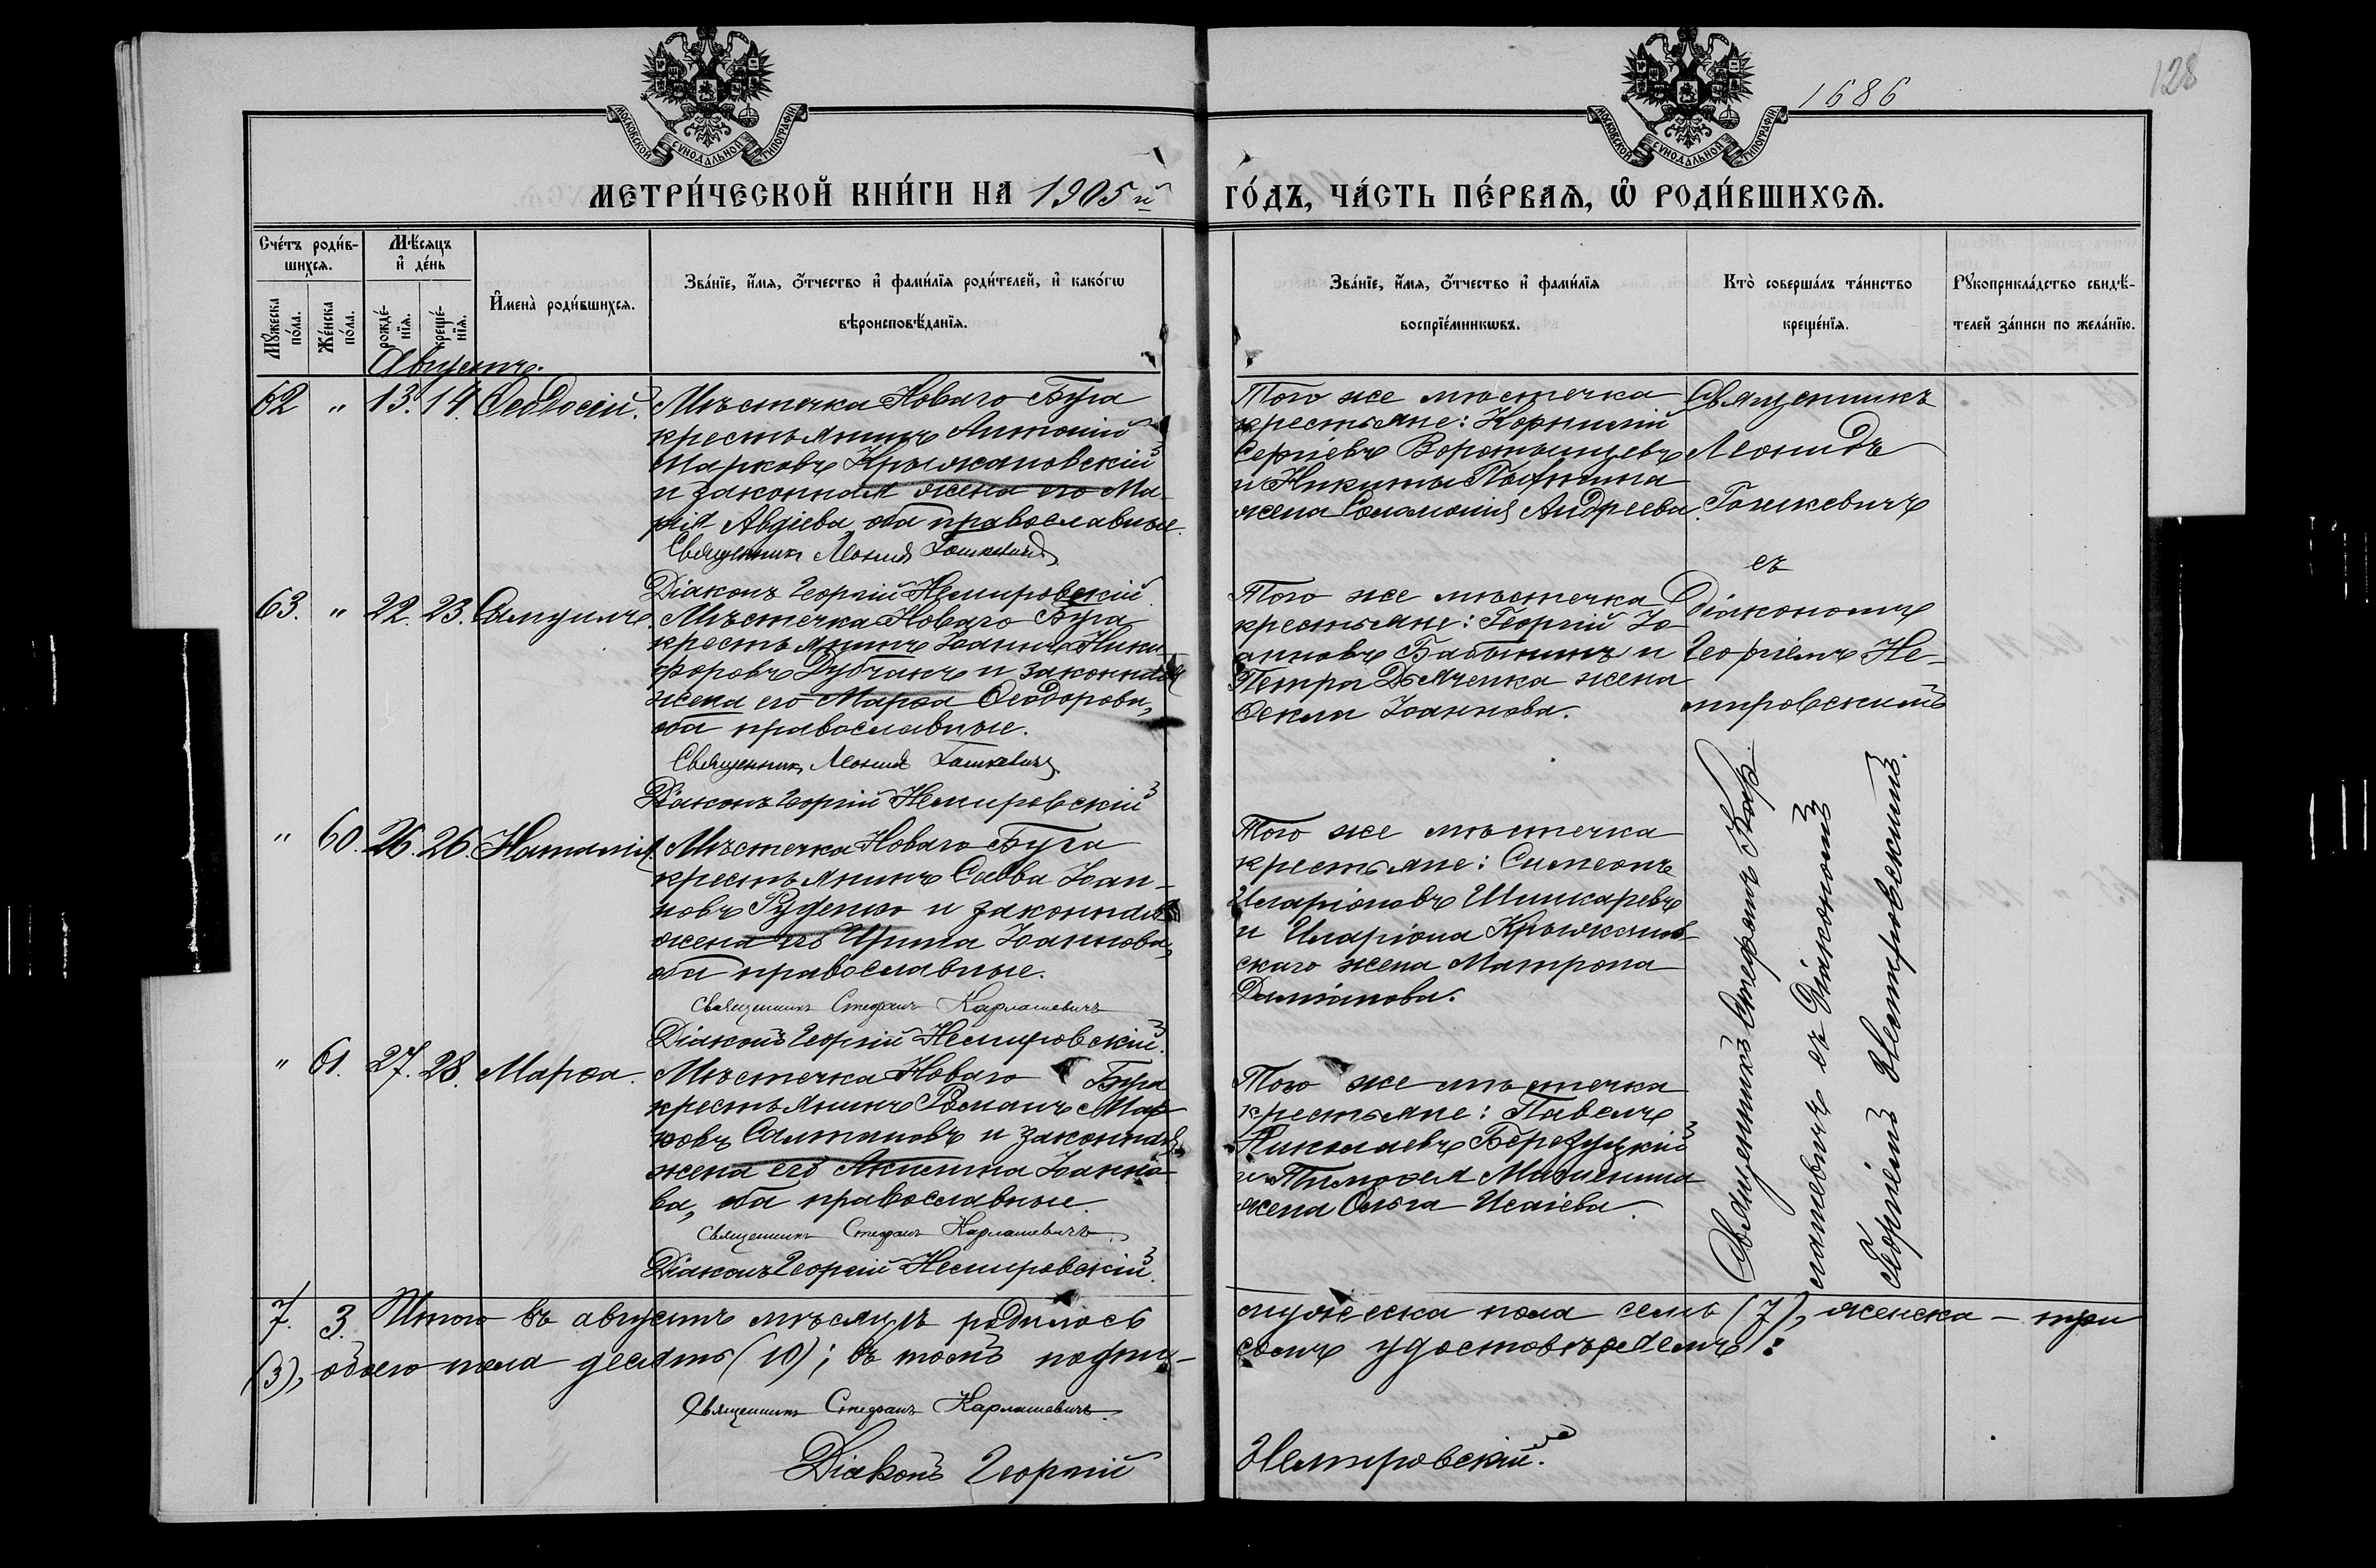 1686
128
МОСКОВСКОЙ СУНОДАЛЬНОЙ ТИПОГРАФІИ
МОСКОВСКОЙ СУНОДАЛЬНОЙ ТИПОГРАФІИ
МЕТРИ́ЧЕСКОЙ КНИ́ГИ НА 1905й
ГО́ДЪ, ЧА́СТЬ ПЕ́РВАѦ, Ѡ РОДИ́ВШИХСѦ.
Сче́тъ роди́в-
шихсѧ.
Мѹ́жеска по́ла.
Же́нска по́ла.
Мѣ́сѧцъ
и҆ де́нь
рожде́-нїѧ.
креще́-нїѧ.
И҆мена̀ роди́вшихсѧ.
Зва́нїе, и҆́мѧ, ѻ҆́тчество и҆ фами́лїѧ роди́телей, и҆ како́гѡ
вѣроисповѣ́данїѧ.
Зва́нїе, и҆́мѧ, ѻ҆́тчество и҆ фами́лїѧ
воспрїе́мникѡвъ.
Кто̀ соверша́лъ та́инство
креще́нїѧ.
Рѹкоприкла́дство свидѣ́-
телей за́писи по жела́нїю.
Августъ.
62 " 13. 14. Ѳеодосій.
Мѣстечка Новаго Буга
крестьянинъ Антоній
Марковъ Крыжановскій
и законная жена его Ма-
рія Авдіева, оба православные.
Священникъ Леонидъ Гошкевичъ
Діаконъ Георгій Немировскій
Того же мѣстечка
крестьяне: Корнилій
Сергіевъ Воротынцевъ
и Никиты
жена Соломонія Андреева.
Священникъ
Леонидъ
Гошкевичъ
съ
Діакономъ
Георгіемъ Не-
мировскимъ
63. " 22. 23. Самуилъ
Мѣстечка Новаго Буга
крестьянинъ Іоаннъ Ники-
форовъ Дубчакъ и законная
жена его Марѳа Ѳеодорова,
оба православные.
Священникъ Леонидъ Гошкевичъ
Діаконъ Георгій Немировскій
Того же мѣстечка
крестьяне: Георгій Іо-
анновъ Бабынинъ и
Петра Дьяченка жена
Ѳекла Іоаннова.
" 60. 26. 26. Наталія
Мѣстечка Новаго Буга
крестьянинъ Савва Іоан-
новъ Руденко и законная
жена его Ирина Іоаннова,
оба православные.
Священникъ Стефанъ Карлашевичъ
Діаконъ Георгій Немировскій.
Того же мѣстечка
крестьяне: Симеонъ
Иларіоновъ Шинкаревъ
и Иларіона Крыжанов-
скаго жена Матрона
Даміанова.
Священникъ Стефанъ Кар-
лашевичъ съ Діакономъ
Георгіемъ Немировскимъ.
" 61. 27. 28. Марѳа.
Мѣстечка Новаго Буга
крестьянинъ Романъ Мар-
ковъ Салтановъ и законная
жена его Акилина Іоанно-
ва, оба православные.
Священникъ Стефанъ Карлашевичъ
Діаконъ Георгій Немировскій.
Того же мѣстечка
крестьяне: Павелъ
Николаевъ Березуцкій
и Тимоѳея
жена Ольга Исаіева.
7. 3. Итого въ августѣ мѣсяцѣ родилось
мужеска пола семь (7), женска – три
(3), обоего пола десять (10); въ томъ подпи-
сомъ удостовѣряемъ:
Священникъ Стефанъ Карлашевичъ.
Діаконъ Георгій
Немировскій.